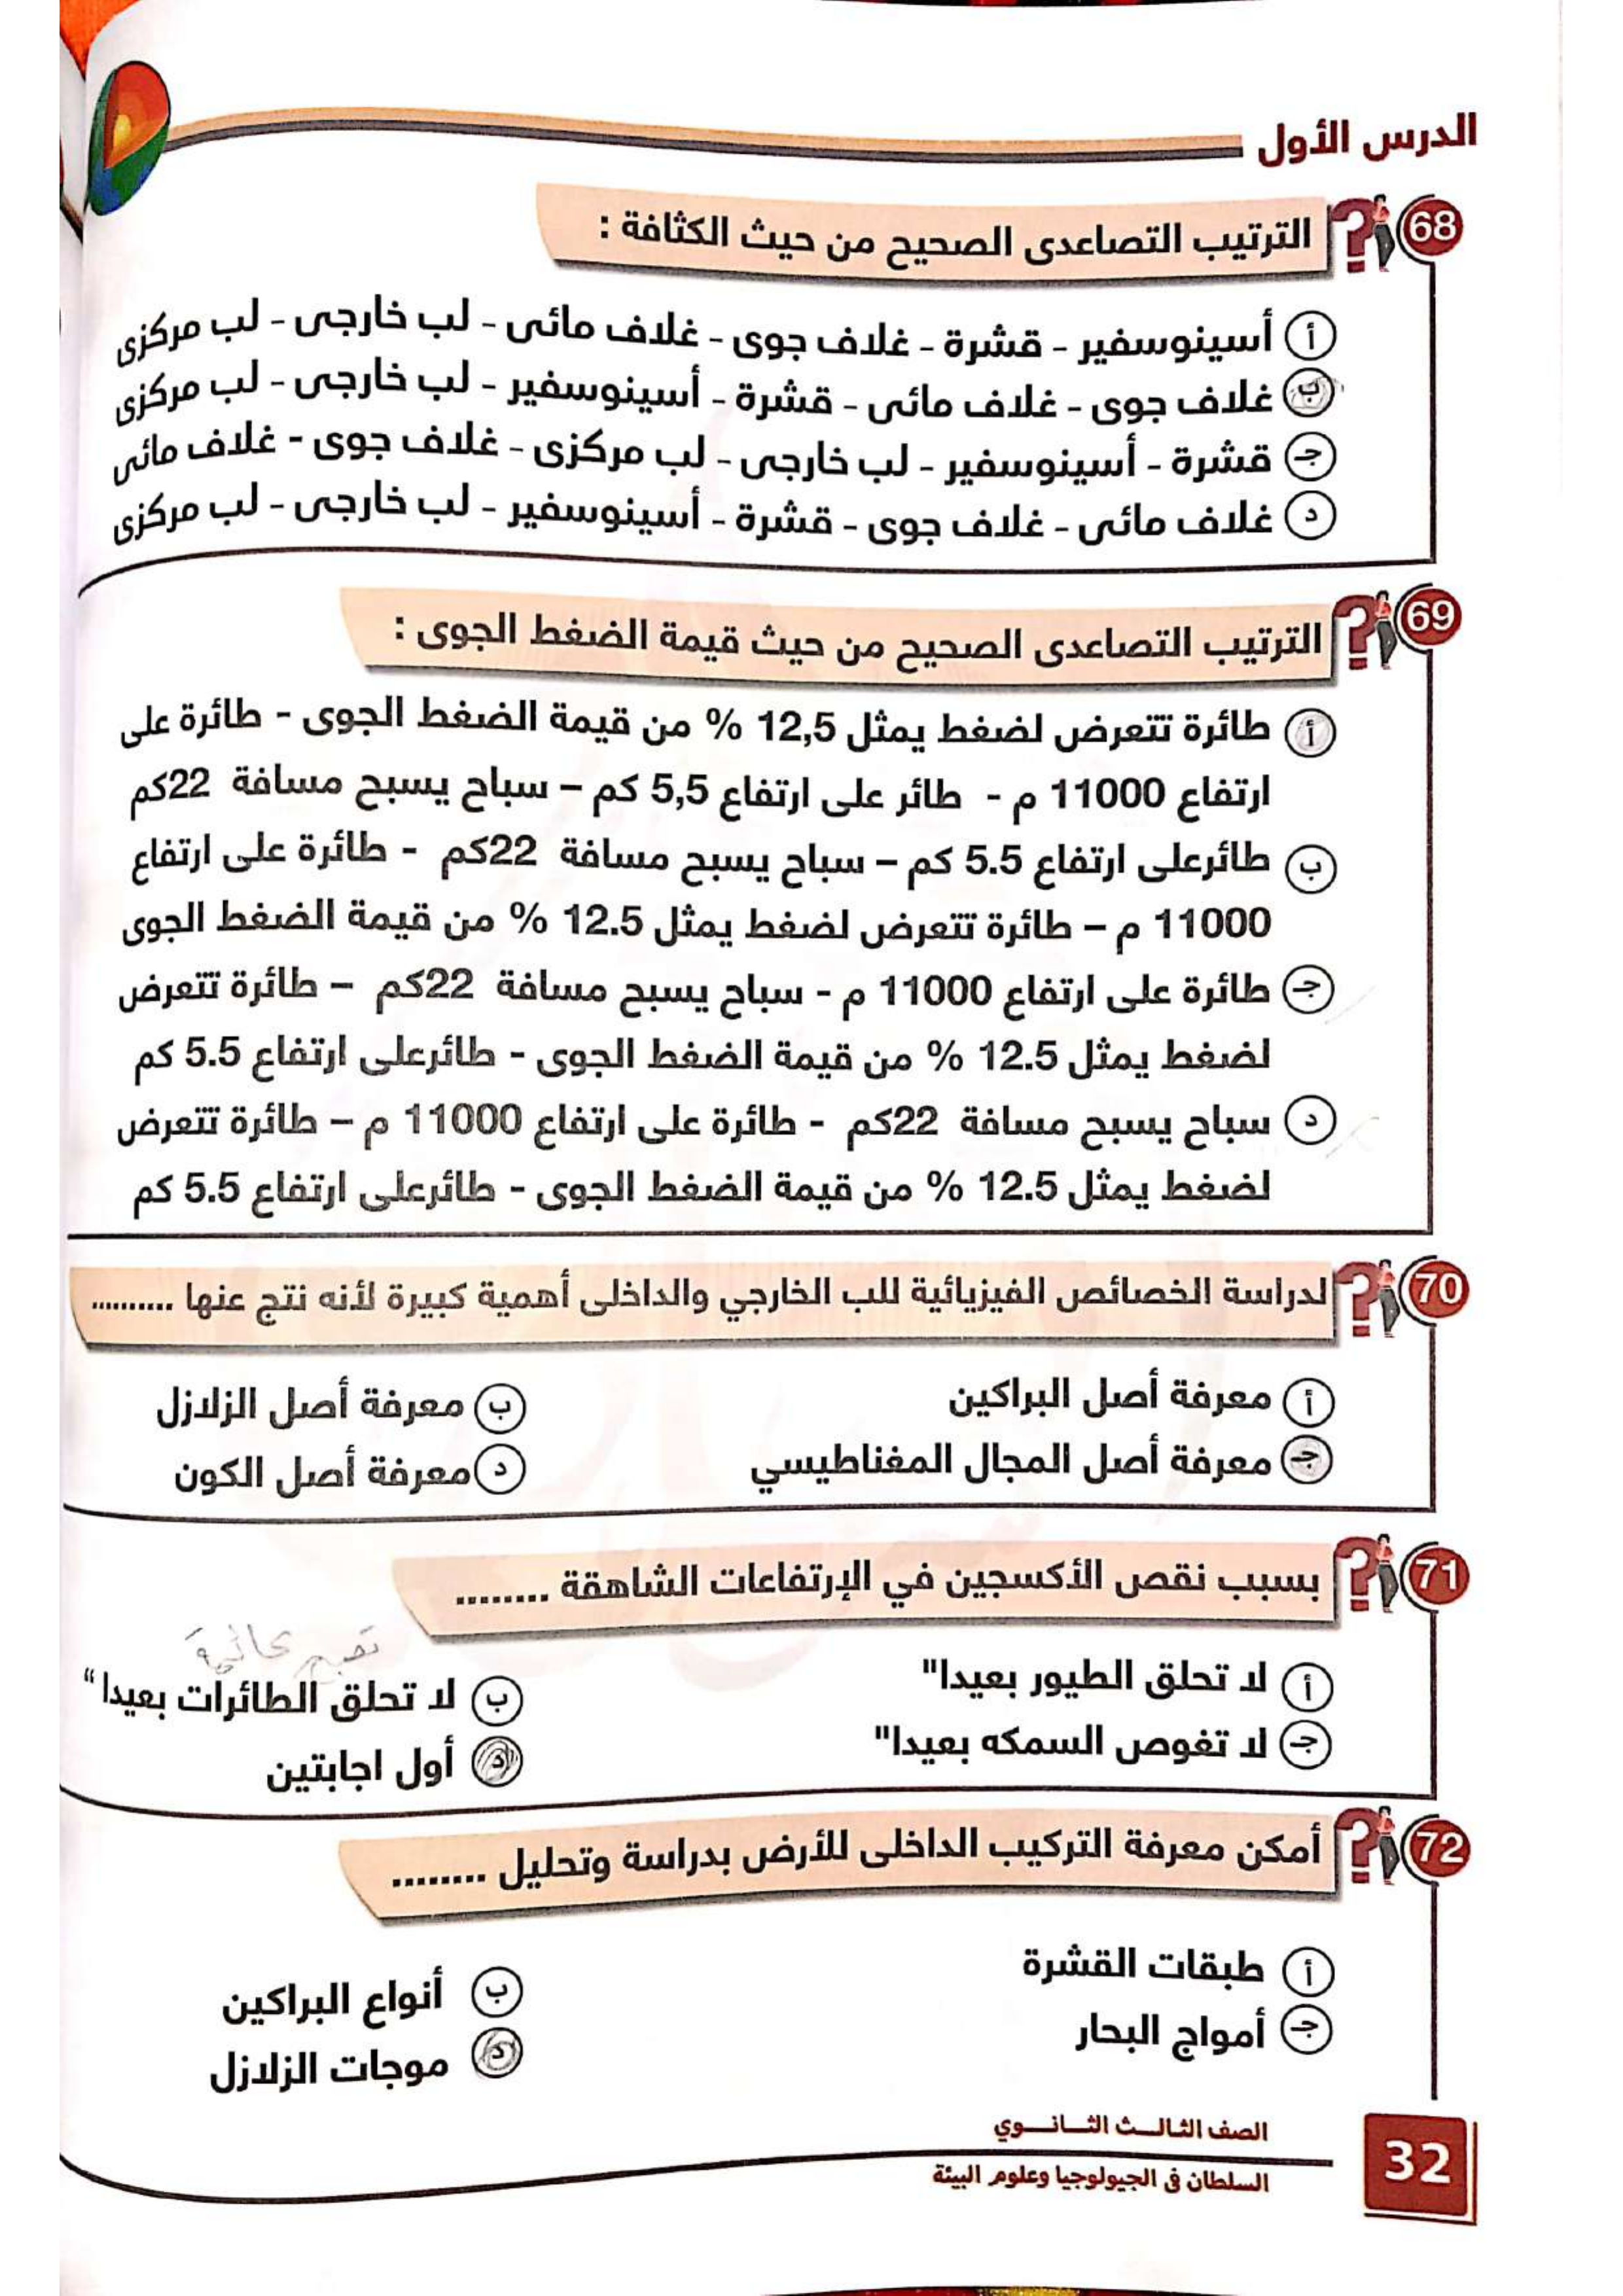 الدرس الأول
68 الترتيب التصاعدى الصحيح من حيث الكثافة :
أ أسينوسفير - قشرة - غلاف جوى - غلاف مائى - لب خارجى - لب مركزى
ب غلاف جوى - غلاف مائى - قشرة - أسينوسفير - لب خارجى - لب مركزى
جـ قشرة - أسينوسفير - لب خارجى - لب مركزى - غلاف جوى - غلاف مائى
د غلاف مائى - غلاف جوى - قشرة - أسينوسفير - لب خارجى - لب مركزى
69 الترتيب التصاعدى الصحيح من حيث قيمة الضغط الجوى :
أ طائرة تتعرض لضغط يمثل 12,5 % من قيمة الضغط الجوى - طائرة على
ارتفاع 11000 م - طائر على ارتفاع 5,5 كم – سباح يسبح مسافة 22كم
ب طائرعلى ارتفاع 5.5 كم – سباح يسبح مسافة 22كم - طائرة على ارتفاع
11000 م – طائرة تتعرض لضغط يمثل 12.5 % من قيمة الضغط الجوى
جـ طائرة على ارتفاع 11000 م - سباح يسبح مسافة 22كم – طائرة تتعرض
لضغط يمثل 12.5 % من قيمة الضغط الجوى - طائرعلى ارتفاع 5.5 كم
د سباح يسبح مسافة 22كم - طائرة على ارتفاع 11000 م – طائرة تتعرض
لضغط يمثل 12.5 % من قيمة الضغط الجوى - طائرعلى ارتفاع 5.5 كم
70 لدراسة الخصائص الفيزيائية للب الخارجي والداخلى أهمية كبيرة لأنه نتج عنها ..........
أ معرفة أصل البراكين
ب معرفة أصل الزلازل
جـ معرفة أصل المجال المغناطيسي
د معرفة أصل الكون
71 بسبب نقص الأكسجين في الإرتفاعات الشاهقة ........
أ لا تحلق الطيور بعيدا"
ب لا تحلق الطائرات بعيدا"
جـ لا تغوص السمكه بعيدا"
د أول اجابتين
72 أمكن معرفة التركيب الداخلى للأرض بدراسة وتحليل ........
أ طبقات القشرة
ب أنواع البراكين
جـ أمواج البحار
د موجات الزلازل
الصف الثالـــث الثـــانــــوي
السلطان فى الجيولوجيا وعلوم البيئة
32